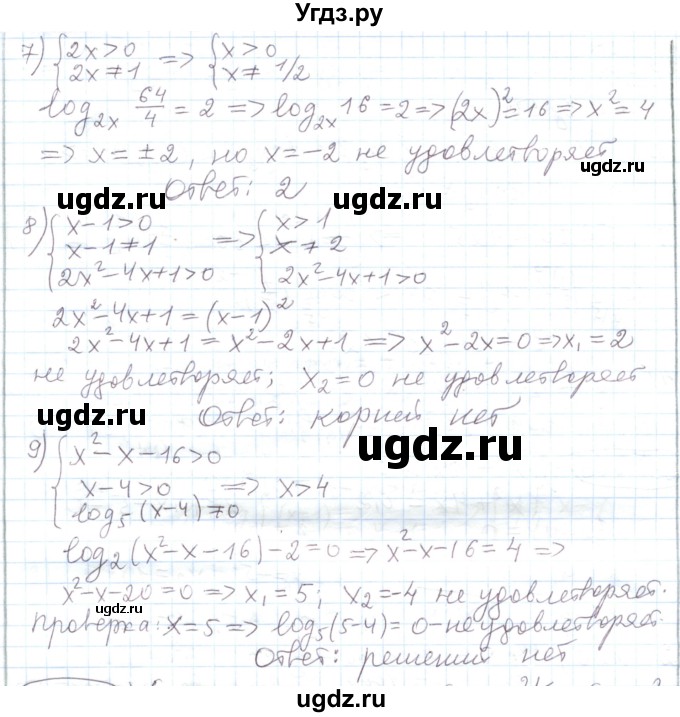 Угдз.ру
7) {2x>0 => {x>0
2x≠1 x≠1/2
log_{2x} 64/4 = 2 => log_{2x} 16 = 2 => (2x)² = 16 => x² = 4
=> x = ±2, но x = -2 не удовлетворяет
Ответ: 2
ugdz.ru ugdz.ru
8) {x-1>0 => {x>1
x-1≠1 x≠2
2x²-4x+1>0 2x²-4x+1>0
2x²-4x+1 = (x-1)²
2x²-4x+1 = x²-2x+1 => x²-2x=0 => x₁=2
не удовлетворяет; x₂=0 не удовлетворяет
Ответ: корней нет
ugdz.ru ugdz.ru
9) {x²-x-16>0
x-4>0 => x>4
log₅(x-4)≠0
log₂(x²-x-16)-2=0 => x²-x-16=4 =>
x²-x-20=0 => x₁=5; x₂=-4 не удовлетворяет.
ugdz.ru
Проверка: x=5 => log₅(5-4)=0 - не удовлетворяет
Ответ: решений нет
ugdz.ru ugdz.ru
ugdz.ru